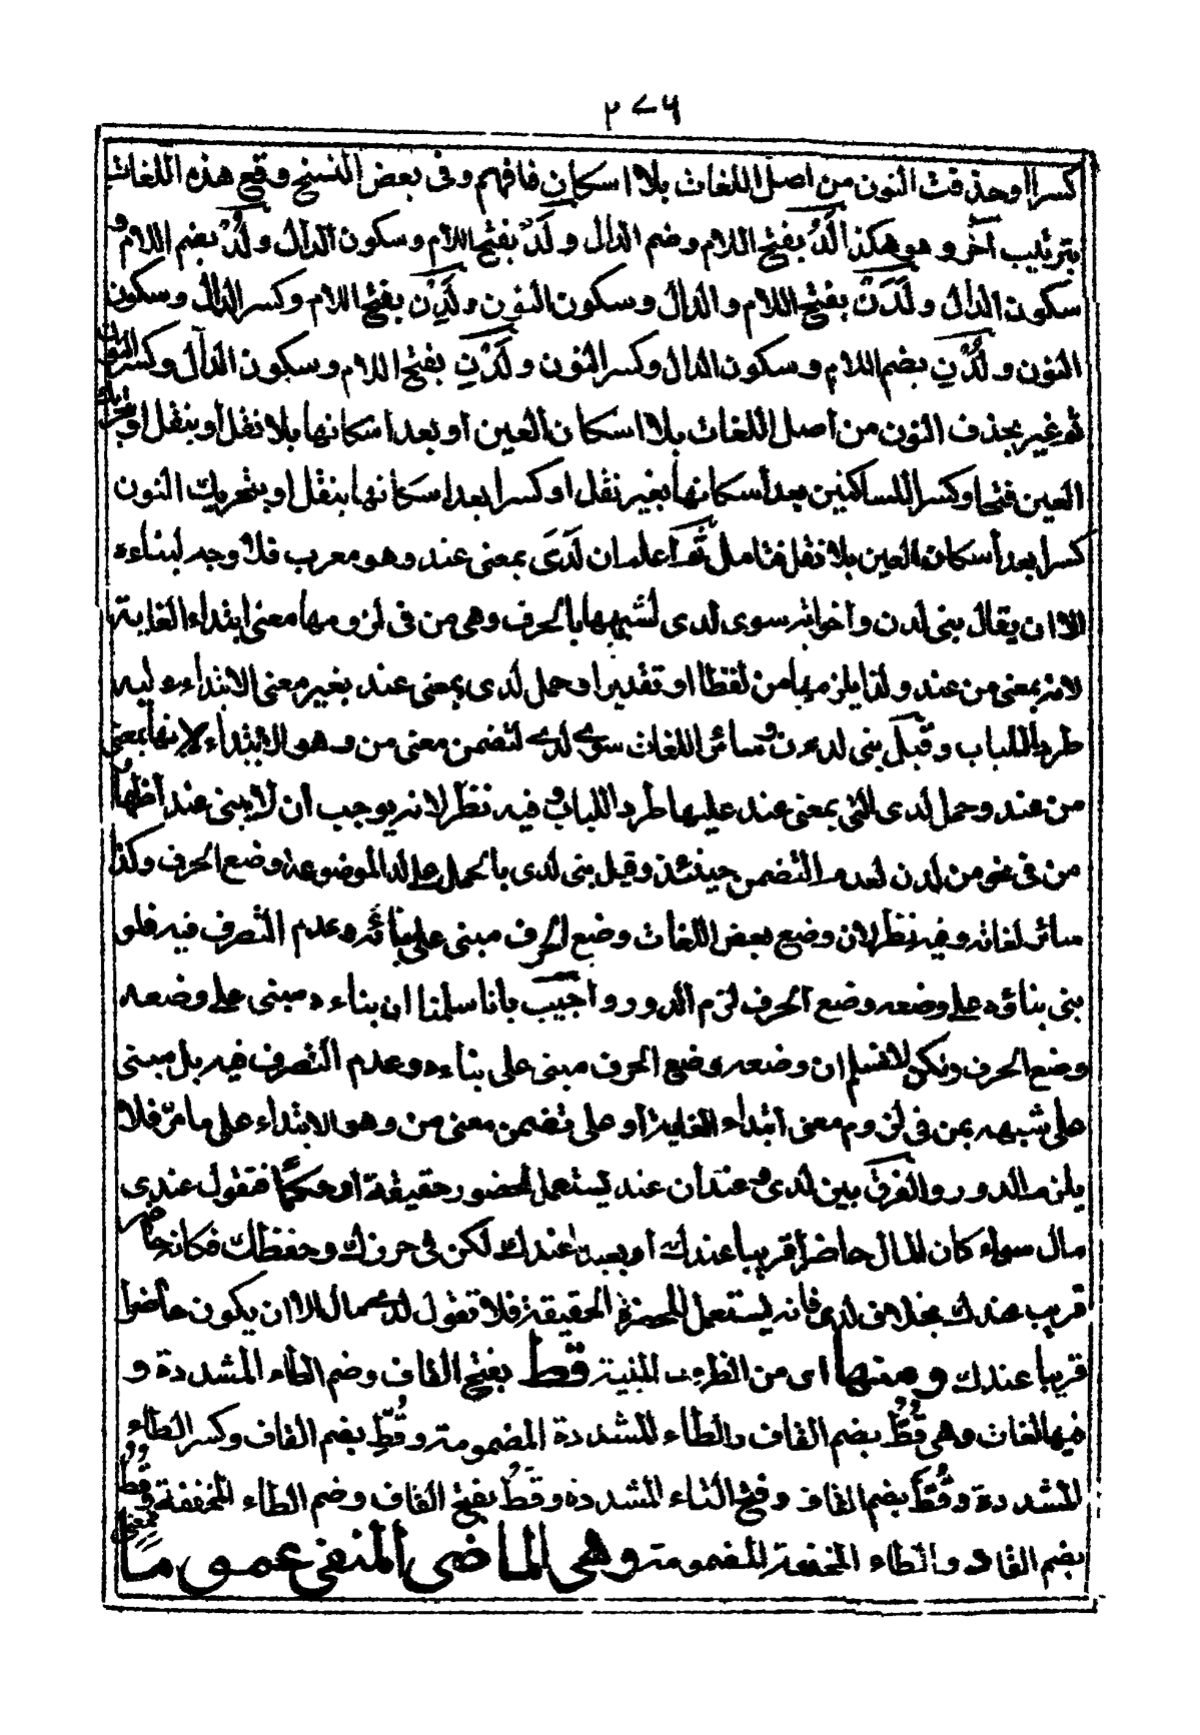 ٢٧٦
كسرا وحذفت النون من اصل اللغات بلا اسكان فافهم وفى بعض النسخ وقع هذه اللغات
بترتيب آخر وهو هكذا لَدُ بفتح اللام وضم الدال ولَدْ بفتح اللام وسكون الدال ولُدْ بضم اللام و
سكون الدال ولَدَنْ بفتح اللام والدال وسكون النون ولَدِنْ بفتح اللام وكسر الدال وسكون
النون ولُدْنِ بضم اللام وسكون الدال وكسر النون ولَدْنِ بفتح اللام وسكون الدال وكسر النون
ثم غير بحذف النون من اصل اللغات بلا اسكان العين او بعد اسكانها بلا نقل او بنقل او بتحريك
العين فتحا وكسرا للساكنين بعد اسكانها بغير نقل او كسرا بعد اسكانها بنقل او بتحريك النون
كسرا بعد اسكان العين بلا نقل فتامل ثم اعلم ان لَدَى بمعنى عند وهو معرب فلا وجه لبناءه
الا ان يقال بنى لدن واخواته سوى لدى لشبهها بالحرف وهى من فى لزومها معنى ابتداء الغاية
لانه بمعنى من عند ولذا يلزمها من لفظا او تقديرا وحمل لدى بمعنى عند بغير معنى الابتداء عليه
طردا للباب وقيل بنى لدن وسائر اللغات سوى لدى لتضمن معنى من وهو الابتداء لانها بمعنى
من عند وحمل لدى التى بمعنى عند عليها طردا للباب وفيه نظر لانه يوجب ان لا يبنى عند اظهار
من فى نحو من لدن لعدم التضمن حينئذ وقيل بنى لدى بالحمل على لد الموضوعة وضع الحرف وكذا
سائر لغاته وفيه نظر لان وضع بعض اللغات وضع الحرف مبنى على بنائه وعدم التصرف فيه فلو
بنى بناؤه على وضعه وضع الحرف لزم الدور واجيب بانا سلمنا ان بناءه مبنى على وضعه
وضع الحرف ولكن لا نسلم ان وضعه وضع الحرف مبنى على بناءه وعدم التصرف فيه بل مبنى
على شبهه بمن فى لزوم معنى ابتداء الغاية او على تضمن معنى من وهو الابتداء على ما مرّ فلا
يلزم الدور والفرق بين لدى وعند ان عند يستعمل للحضور حقيقة او حكما فتقول عندى
مال سواء كان المال حاضرا قريبا عندك او بعيدا عندك لكن فى حرزك وحفظك فكانه حاضر
قريب عندك بخلاف لدى فانه يستعمل للحضرة الحقيقة فلا تقول لدى مال الا ان يكون حاضرا
قريبا عندك ومنها اى من الظروف المبنية قط بفتح القاف وضم الطاء المشددة و
فيها لغات وهى قُطُّ بضم القاف والطاء المشددة المضمومة وقُطِّ بضم القاف وكسر الطاء
المشددة وقُطَّ بضم القاف وفتح الثاء المشددة وقَطُ بفتح القاف وضم الطاء المخففة وقُطُ
بضم القاف والطاء المخففة المضمومة وهى للماضى المنفى عموما بمعنى